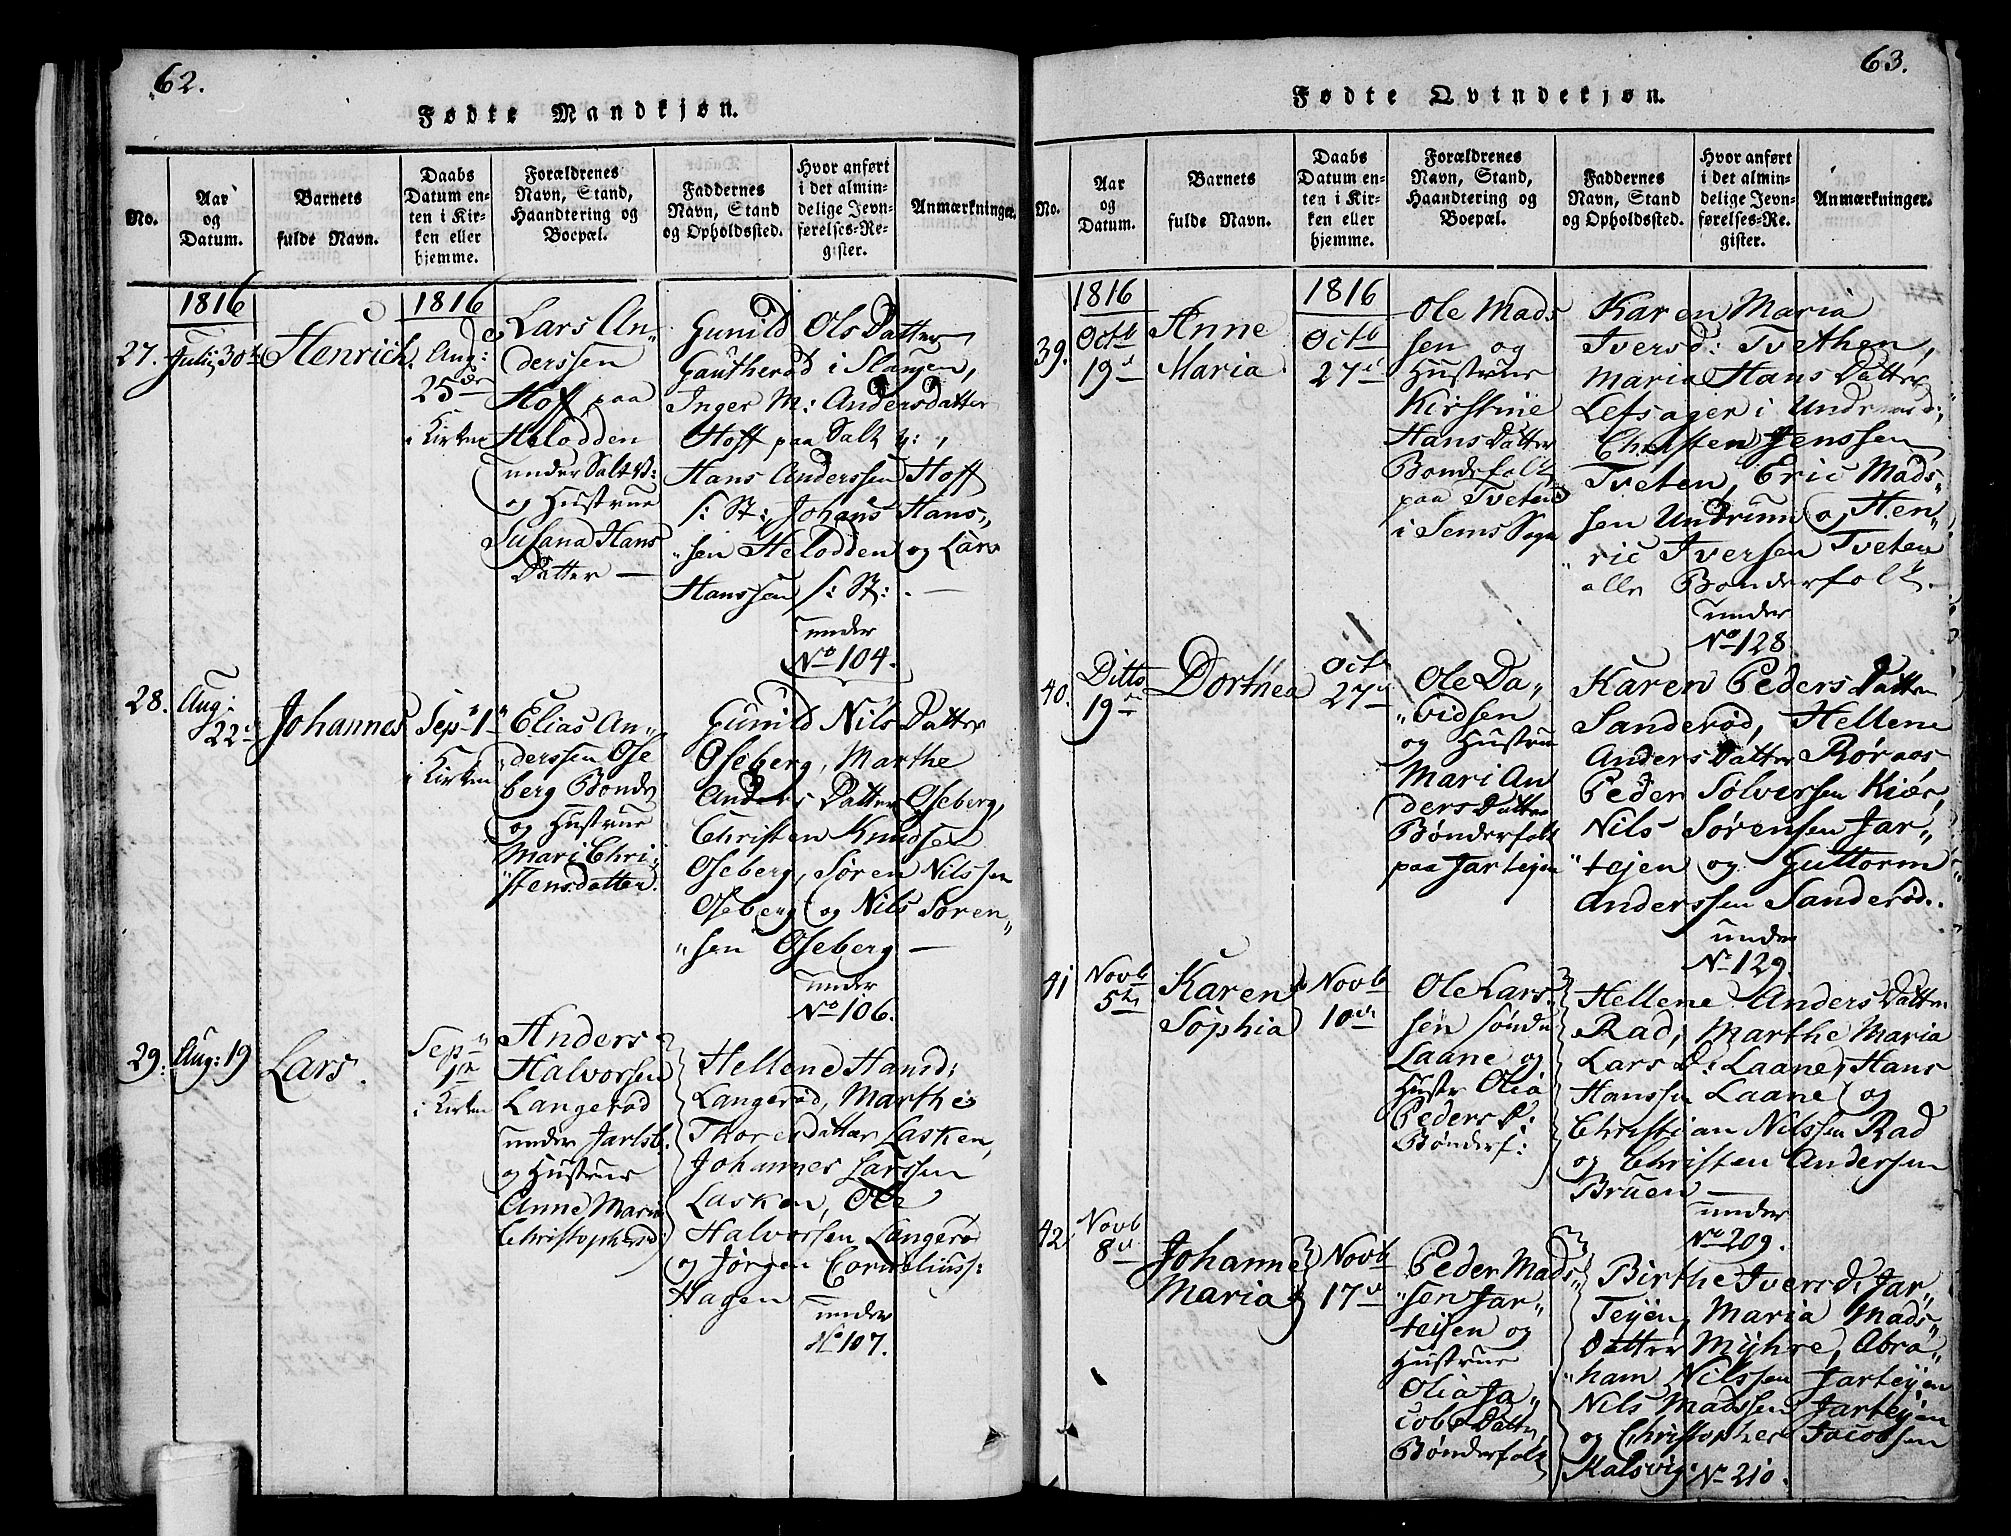 62.
Fødte Mandkjøn.
No.
Aar
og
Datum.
Barnets
fulde Navn.
Daabs
Datum en-
ten i Kir-
ken eller
hjemme.
Forældrenes
Navn, Stand,
Haandtering og
Boepæl.
Faddernes
Navn, Stand
og Opholdssted.
Hvor anført
i det almin-
delige Jevn-
førelses-Re-
gister.
Anmærkninger.
1816
27.
Julii 30te
Henrich.
1816
Aug:
25de
i Kirken
Lars An-
derssen
Hoff paa
Helodden
under Salt B:
og Hustrue
Susana Hans
Datter —
Gunild Ols Datter
Gautherød i Slangen,
Inger M: Andersdatter
Hoff paa Salt
Hans Anderssen Hoff
s: St:, Johans Hans„
„sen Helodden og Lars
Hanssen s: St: . —
under
No 104.
28.
Aug:
22de
Johannes
Sep„ 1„
i Kirken
Elias An„
derssen Ose
berg Bonde
og Hustrue
Mari Chri„
„stensdatter.
Gunild Nils Datter
Oseberg, Marthe
Anders Datter Oseberg,
Christen Knudsen
Oseberg, Søren Nilssen
Oseberg og Nils Søren„
„sen Oseberg —
under
No 106.
29.
Aug: 19
Lars.
Sep„
1te
i Kirken
Anders
Halvorsen
Langerød
under Jarlsb.
og Hustrue
Anne Maria
Christophersd:
Hellene Hansd:
Langerød, Marthe
Thoresdatter Lasken,
Johannes Larssen
Lasken, Ole
Halvorsen Langerød
og Jørgen Corneliuss:
Hagen
under
No 107.
63.
Fødte Qvindekjøn.
No.
Aar
og
Datum.
Barnets
fulde Navn.
Daabs
Datum en-
ten i Kir-
ken eller
hjemme.
Forældrenes
Navn, Stand,
Haandtering og
Boepæl.
Faddernes
Navn, Stand
og Opholdssted.
Hvor anført
i det almin-
delige Jevn-
førelses-Re-
gister.
Anmærkninger.
1816
39.
Octb
19d
Anne
Maria
1816
Octb
27d
Ole Mads
sen og
Hustrue
Kirstine
Hans Datter
Bondefolk
paa Tveten
i Sems Sogn
Karen Maria
Iversd: Tvethen,
Maria Hans Datter
Lefsager i
Christen Jenssen
Tveten, Eric Mads„
sen Undrum og Hen„
„ric Iversen Tveten
alle Bonderfolk.
under
No 128.
40.
Ditto
19de
Dorthea
Oct
27d
Ole Da„
„vidsen
og Hustrue
Mari An
ders Datter
Bønderfolk
paa Jartejen
Karen Peders Datter
Sanderød, Hellene
Anders Datter Røraas
Peder Sølversen Kiær,
Nils Sørensen Jar„
„tejen og Guttorm
Anderssen Sanderød.
under
No 129.
41
Novb
5te
Karen
Sophia
Novb
10de
Ole Lars„
sen søndre
Laane og
Hustr Olia
Peders D:
Bønderf:
Hellene Anders Datter
Rad, Marthe Maria
Lars D: Laane, Hans
Hanssen Laane og
Christian Nilssen Rad
og Christen Andersen
Bruen —
under
No 209.
42
Novb
8d
Johanne
Maria
Novb
17d
Peder Mads„
„sen Jar„
tejen og
Hustrue
Olia Ja„
cobs Datter
Bønderfolk
Birthe Iversd, Jar„
Tejen, Maria Mads„
Datter Myhre, Abra„
„ham Nilssen Jartejen
Nils Madssen Jartejen
og Christopher Jacobsen
Kalsvig.
No 210.